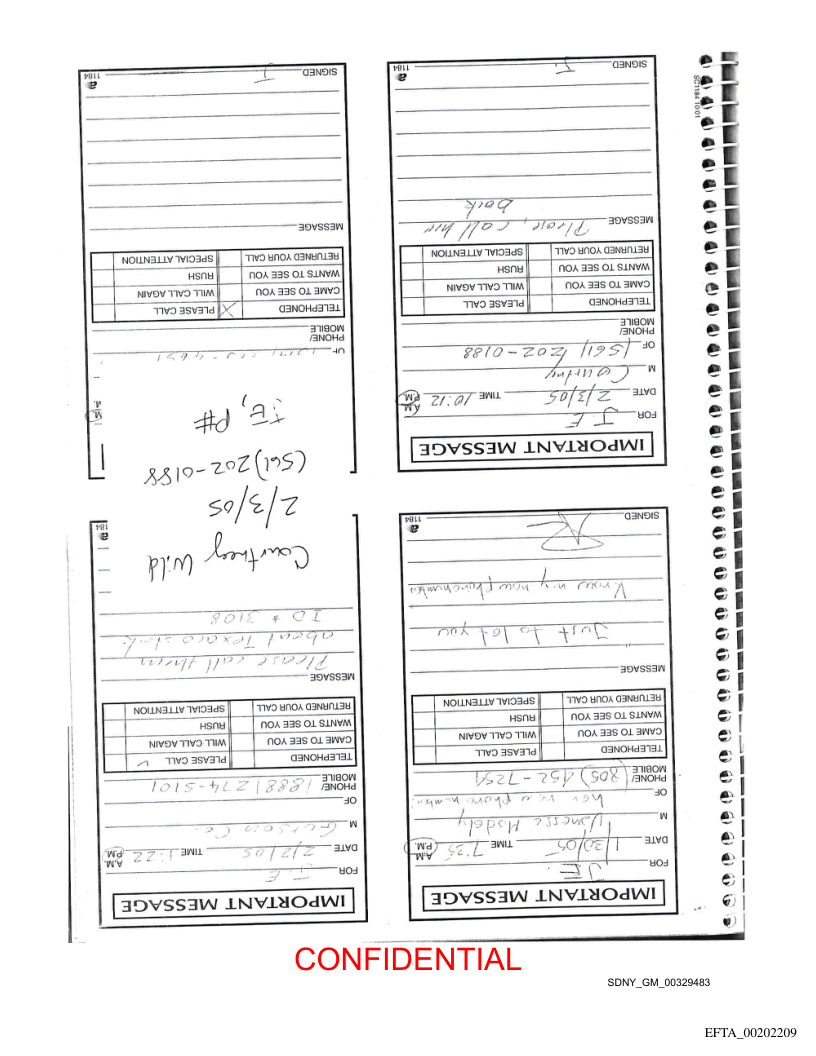 IMPORTANT MESSAGE
FOR J.E.
DATE 1/30/05 TIME 7:25 A.M. P.M.
M
OF her new phone number
PHONE/
MOBILE (305) 452-7254
TELEPHONED PLEASE CALL
CAME TO SEE YOU WILL CALL AGAIN
WANTS TO SEE YOU RUSH
RETURNED YOUR CALL SPECIAL ATTENTION
MESSAGE
"Just to let you
know my new phonenumber
SIGNED
1184
IMPORTANT MESSAGE
FOR J.E.
DATE 2/2/05 TIME 1:22 A.M. P.M.
M
OF
PHONE/
MOBILE (888) 274-5101
TELEPHONED PLEASE CALL ✓
CAME TO SEE YOU WILL CALL AGAIN
WANTS TO SEE YOU RUSH
RETURNED YOUR CALL SPECIAL ATTENTION
MESSAGE
Please call them
about Texaco stock
ID # 3108
Courtney Wild
2/3/05
(561) 202-0188
J.E, PH#
184
IMPORTANT MESSAGE
FOR J.E.
DATE 2/3/05 TIME 10:12 A.M. P.M.
M Courtney
OF (561) 202-0188
PHONE/
MOBILE
TELEPHONED PLEASE CALL
CAME TO SEE YOU WILL CALL AGAIN
WANTS TO SEE YOU RUSH
RETURNED YOUR CALL SPECIAL ATTENTION
MESSAGE Please, call her
back
SIGNED J.
1184
M.
M.
OF
PHONE/
MOBILE
TELEPHONED X PLEASE CALL
CAME TO SEE YOU WILL CALL AGAIN
WANTS TO SEE YOU RUSH
RETURNED YOUR CALL SPECIAL ATTENTION
MESSAGE
SIGNED J
1184
SC1184 10/01
CONFIDENTIAL
SDNY_GM_00329483
EFTA_00202209